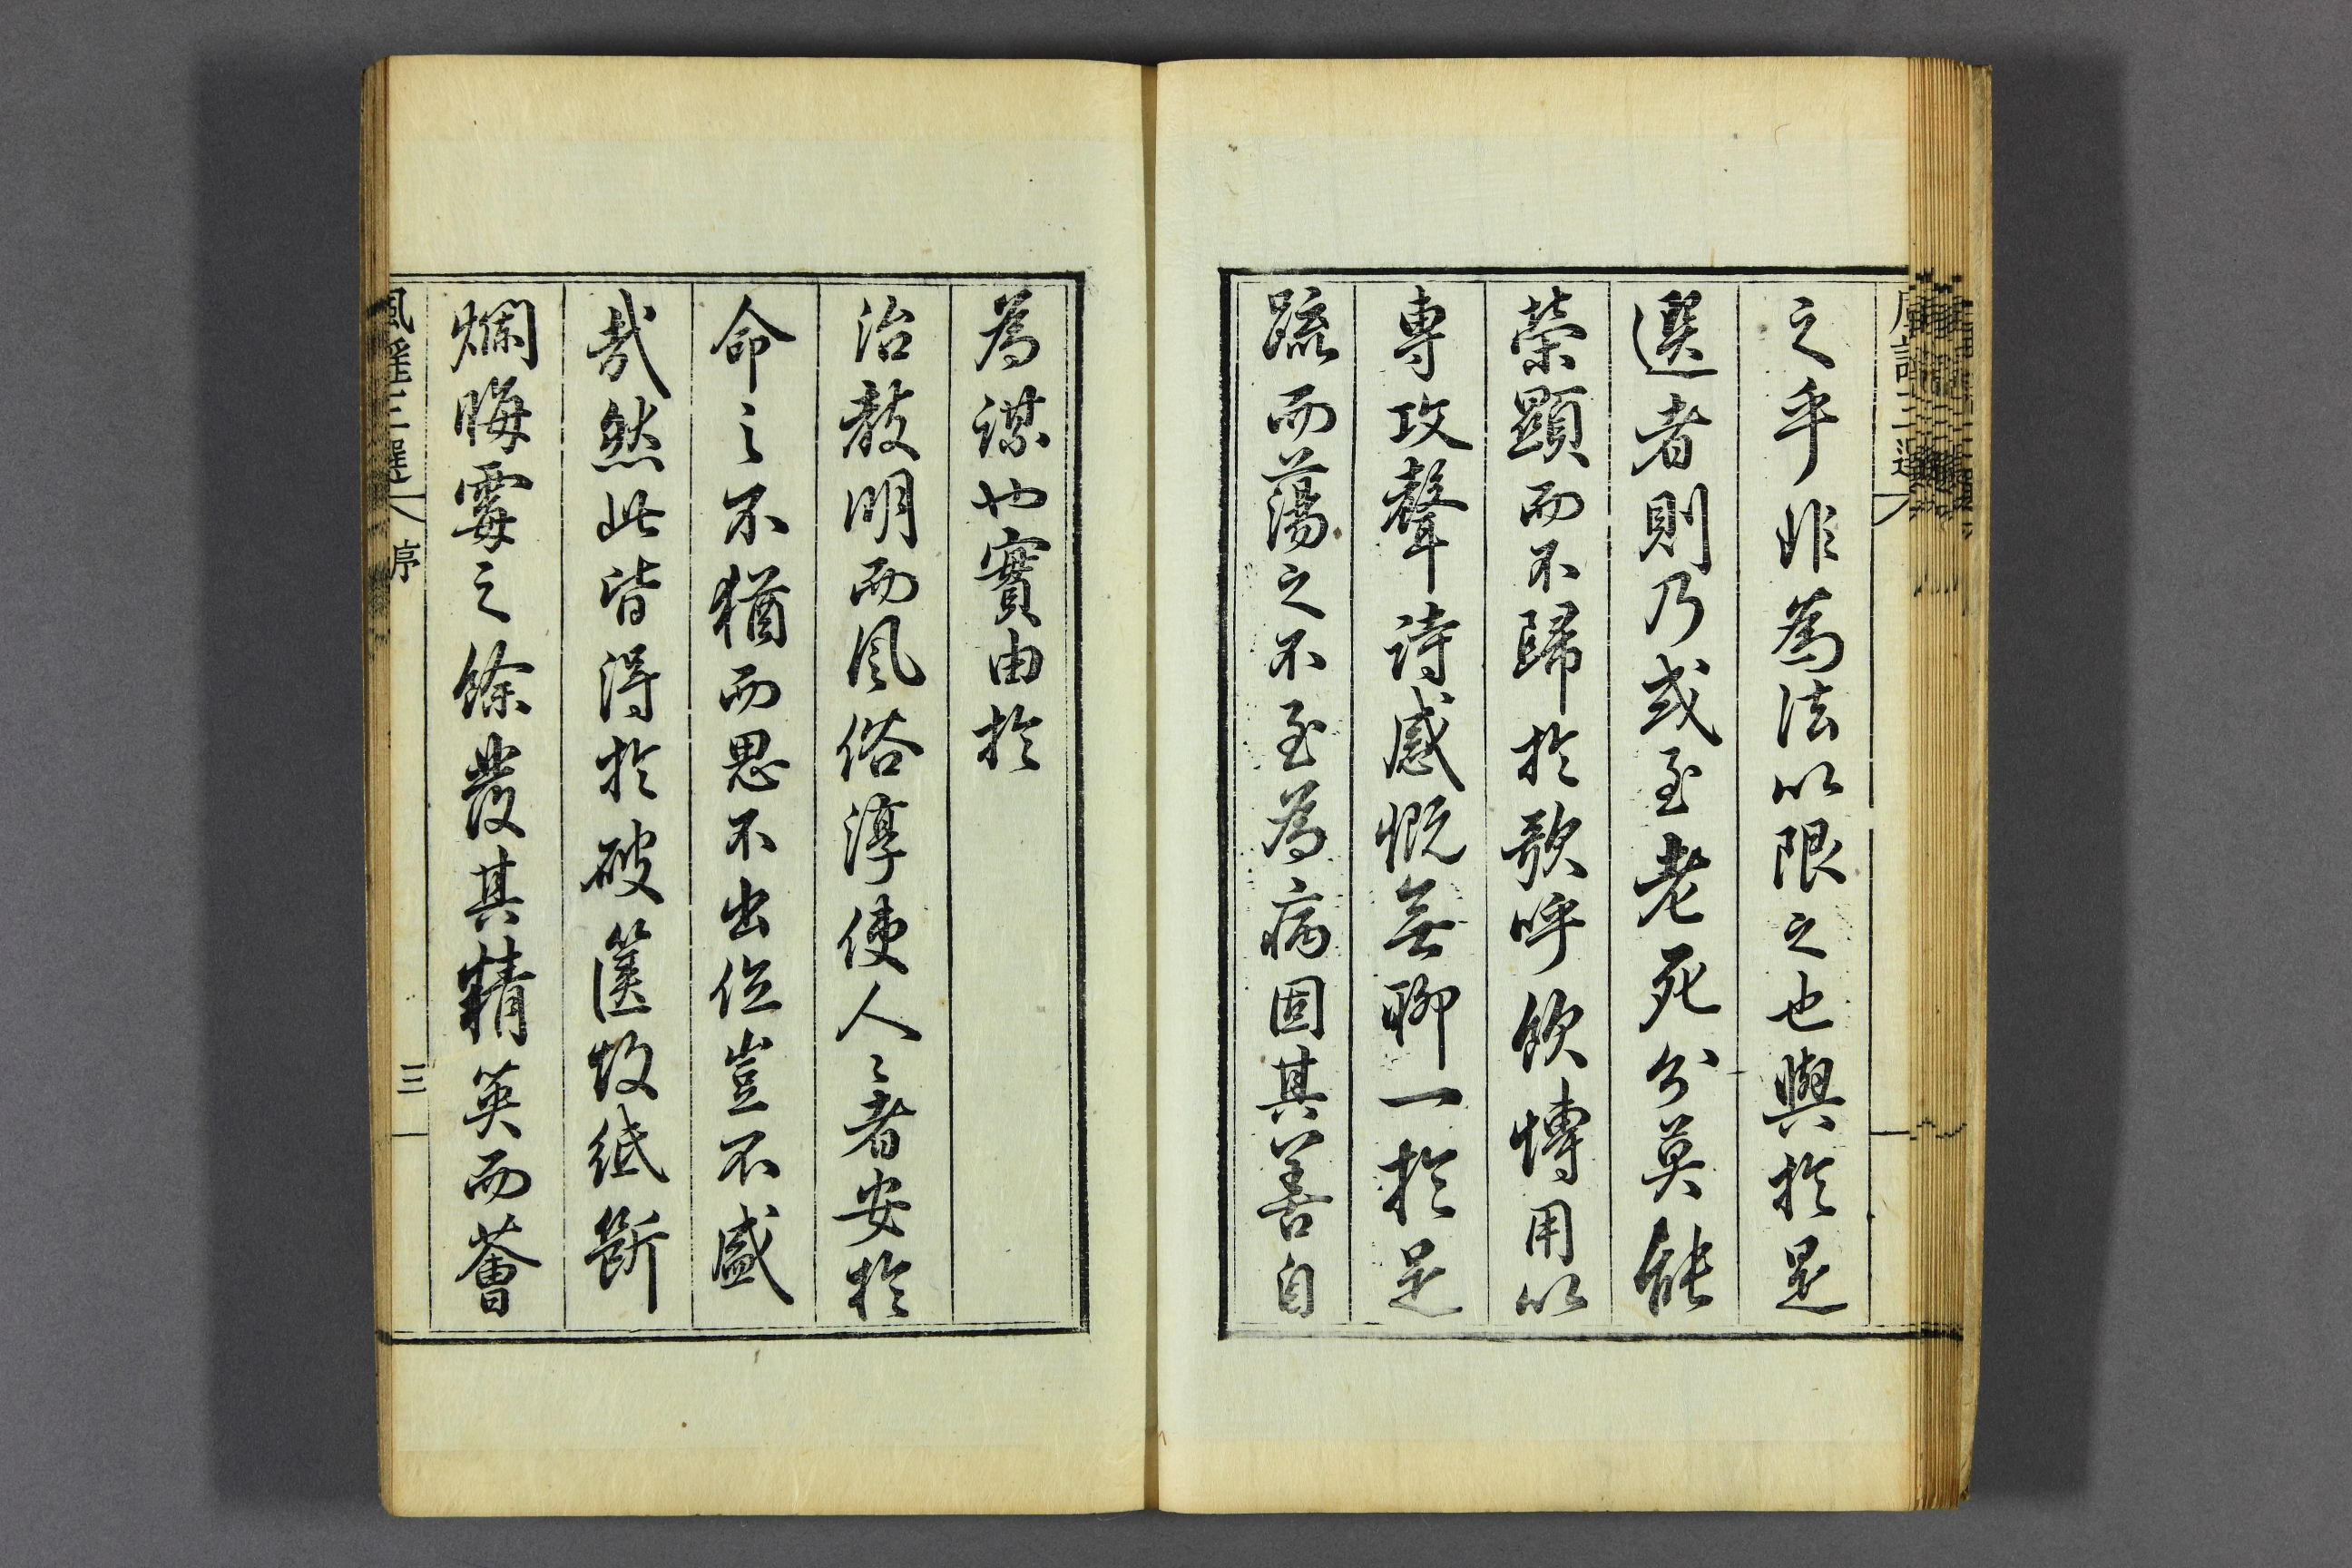 之乎非為法以限之也與於是
選者則乃或至老死分莫能
榮顯而不歸於歌呼飲博用以
專攻聲詩感慨無聊一於是
疏而蕩之不至為病固其善自
為謀也實由於
治教明而風俗淳使人〻者安於
命之不猶而思不出位豈不盛
哉然此皆得於破篋故紙斷
爛晦霉之餘發其精英而薈
風雅三選
序
三